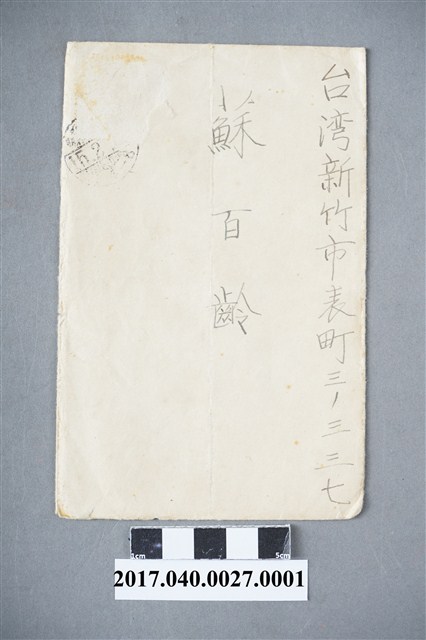 台湾新竹市表町三ノ三三七
蘇百齡
1cm
5cm
2017.040.0027.0001